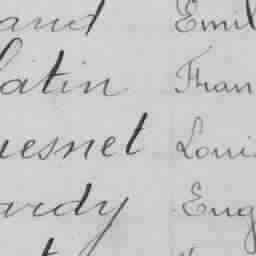 and Emil
latin Fran
uesnet Loui
ardy Eug